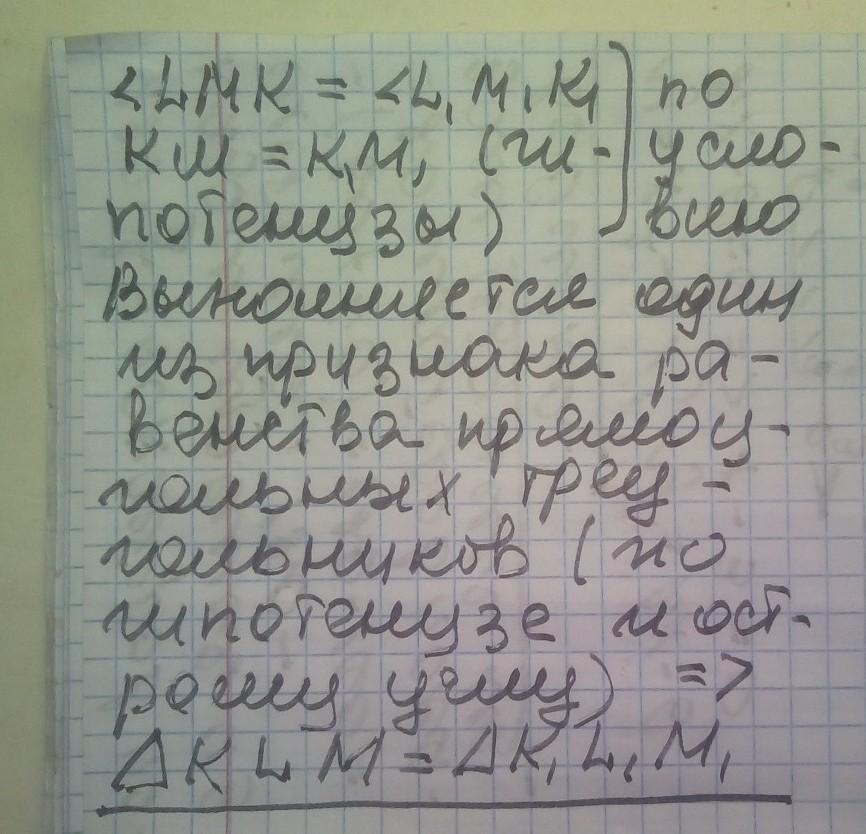 <LMK = <L₁M₁K₁ } по
KM = K₁M₁ (ги- } усло-
потенузы) } вию
Выполняется один
из признака ра-
венства прямоу-
гольных треу-
гольников (по
гипотенузе и ост-
рому углу) =>
ΔKLM = ΔK₁L₁M₁